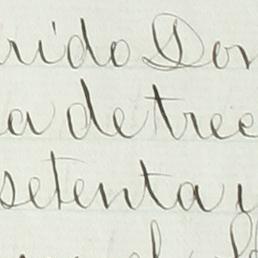 rido Don
a de trec
setenta y